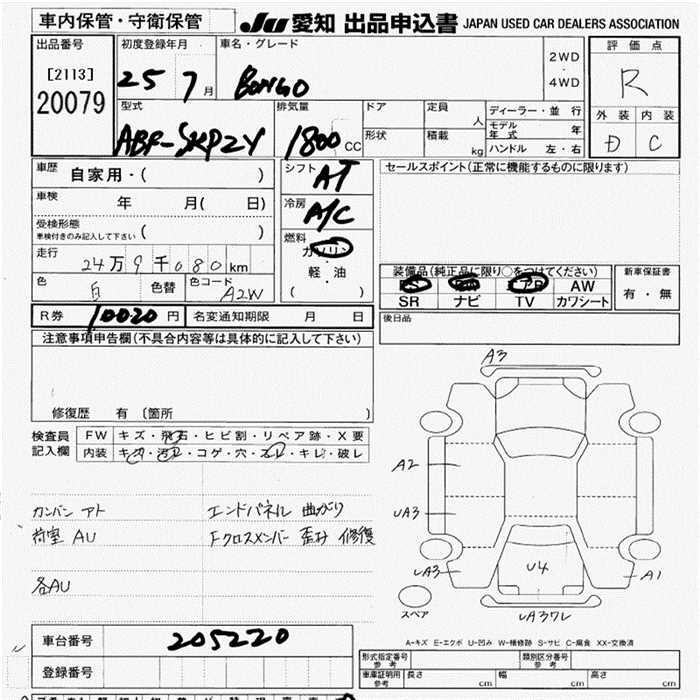 車内保管・守衛保管
JU 愛知 出品申込書 JAPAN USED CAR DEALERS ASSOCIATION
出品番号
[2113]
20079
初度登録年月
25 7月
車名・グレード
BONGO
2WD
・
4WD
評価点
R
外装 内装
D C
型式
ABF-SKP2V
排気量
1800cc
ドア
形状
定員 人
積載 kg
ディーラー・並行
モデル年式 年
ハンドル 左・右
車歴
自家用・( )
車検
年 月( 日)
受検形態
車検付きのみ記入して下さい
( )
走行
24万9千080km
色
白
色替
色コード
A2W
シフト
AT
冷房
A/C
燃料
ガソリン
・
軽・油
( )
セールスポイント(正常に機能するものに限ります)
装備品(純正品に限り○をつけてください)
PS PW エアB AW
SR ナビ TV カワシート
新車保証書
有・無
後日品
R券 10020円
名変通知期限 月 日
注意事項申告欄(不具合内容等は具体的に記入して下さい)
修復歴 有 〔箇所 〕
検査員
記入欄
FW キズ・飛石・ヒビ割・リペア跡・X要
内装 キズ・汚レ・コゲ・穴・スレ・キレ・破レ
カンバン アト
荷室 AU
各AU
エンドパネル 曲がり
Fクロスメンバー 歪み 修復
A3
A2
UA3
UA3
U4
A1
UA3ワレ
スペア
A-キズ E-エクボ U-凹み W-補修跡 S-サビ C-腐食 XX-交換済
車台番号
205220
登録番号
形式指定番号
参考
類別区分番号
参考
車庫証明用
参考
長さ cm
幅 cm
高さ cm